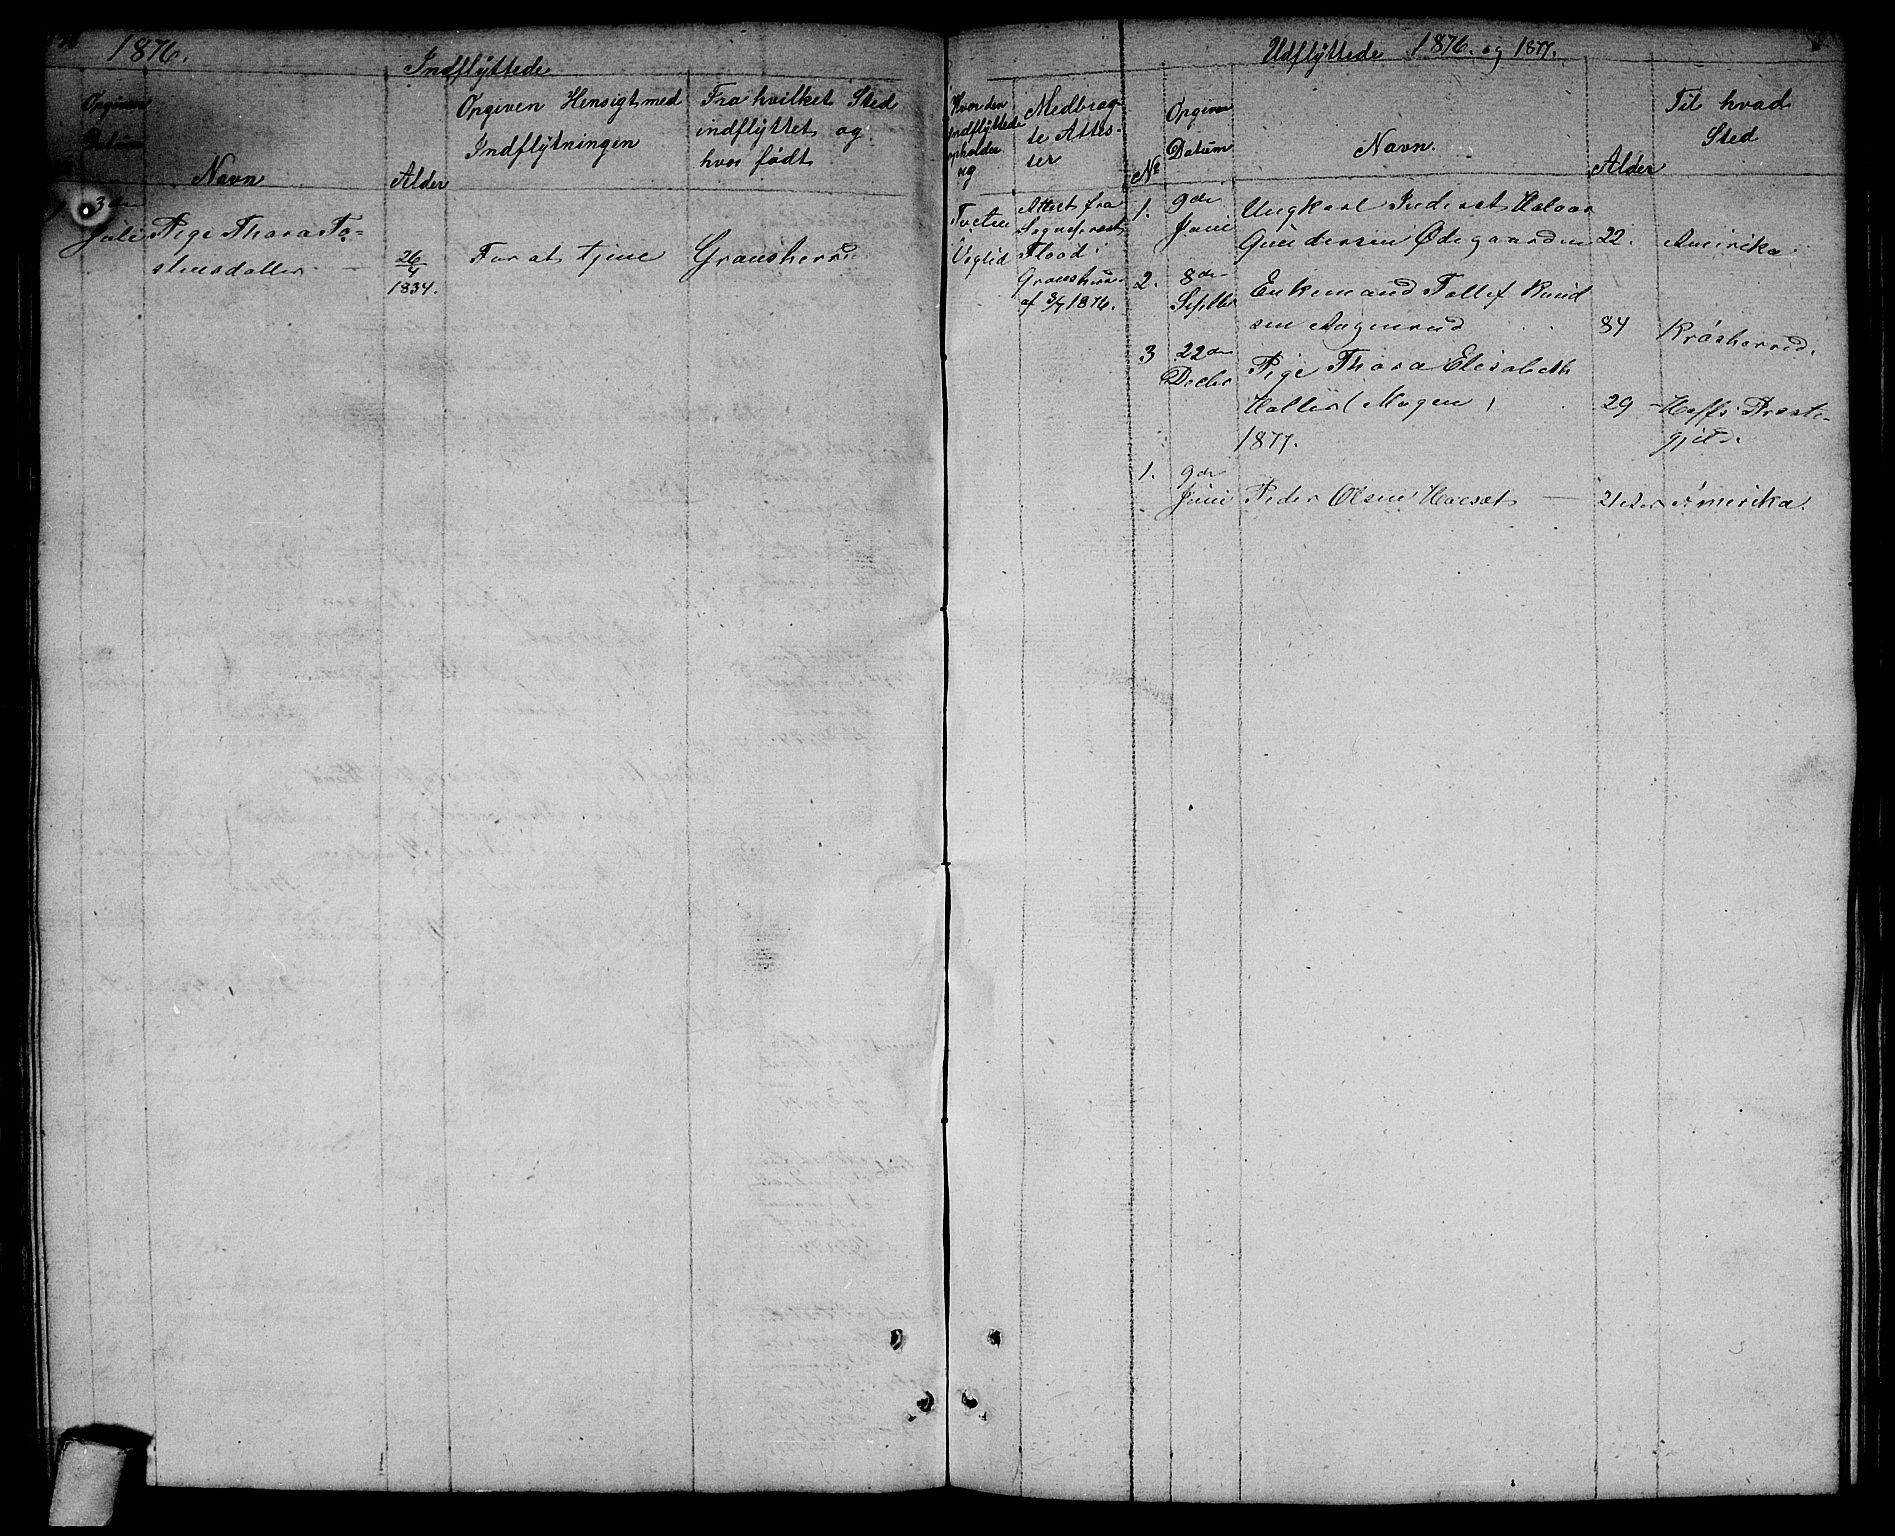 1876.
Indflyttede
Opgiven Datum
Navn
Alder
Opgiven Hensigt med
Indflytningen
Fra hvilket Sted
indflyttet og
hvor født
Hvor den
Indflyttede
opholder
sig
Medbrag-
te Attes-
ter
1
3die
Juli
Pige Thora To-
stensdatter
26/4
1834.
For at tjene
Gransherred
Tveten
Attest fra
Sogneprest
Flood i
Gransherred
af 3/7 1876.
Udflyttede 1876. og 1877.
No
Opgiven
Datum
Navn.
Alder
Til hvad
Sted
1.
9de
Juni
Ungkarl Inderst Halvor
Gundersen Ødegaarden
22.
Amerika.
2.
8de
Septbr
Enkemand Tollef Knud
sen Aagenrud
84
Krødsherred.
3
22de
Decbr
Pige Thora Elisabeth
Mogen
29
Hoffs Præste-
gjeld.
1877.
1.
9de
Juni
Peder Olsen
Amerika.